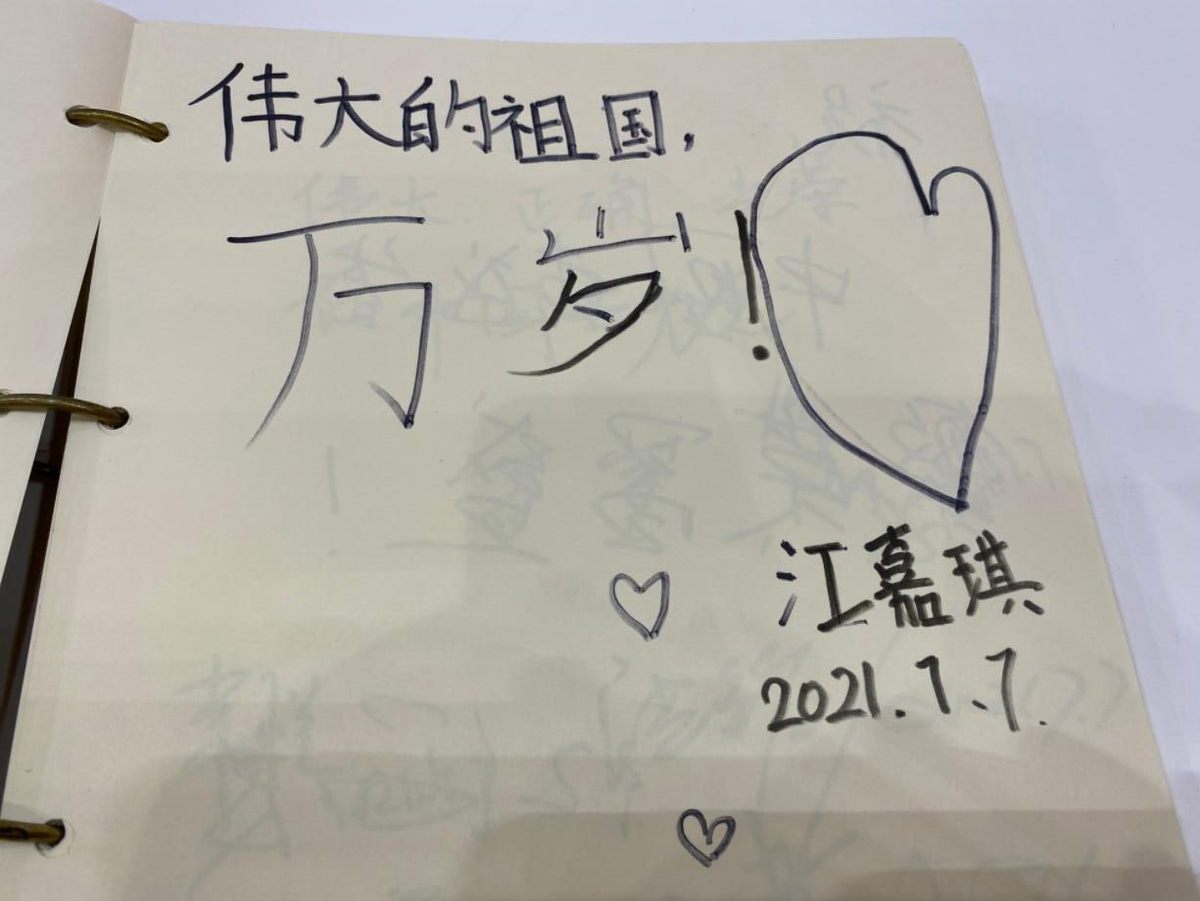 伟大的祖国,
万岁!
江嘉琪
2021.7.7.